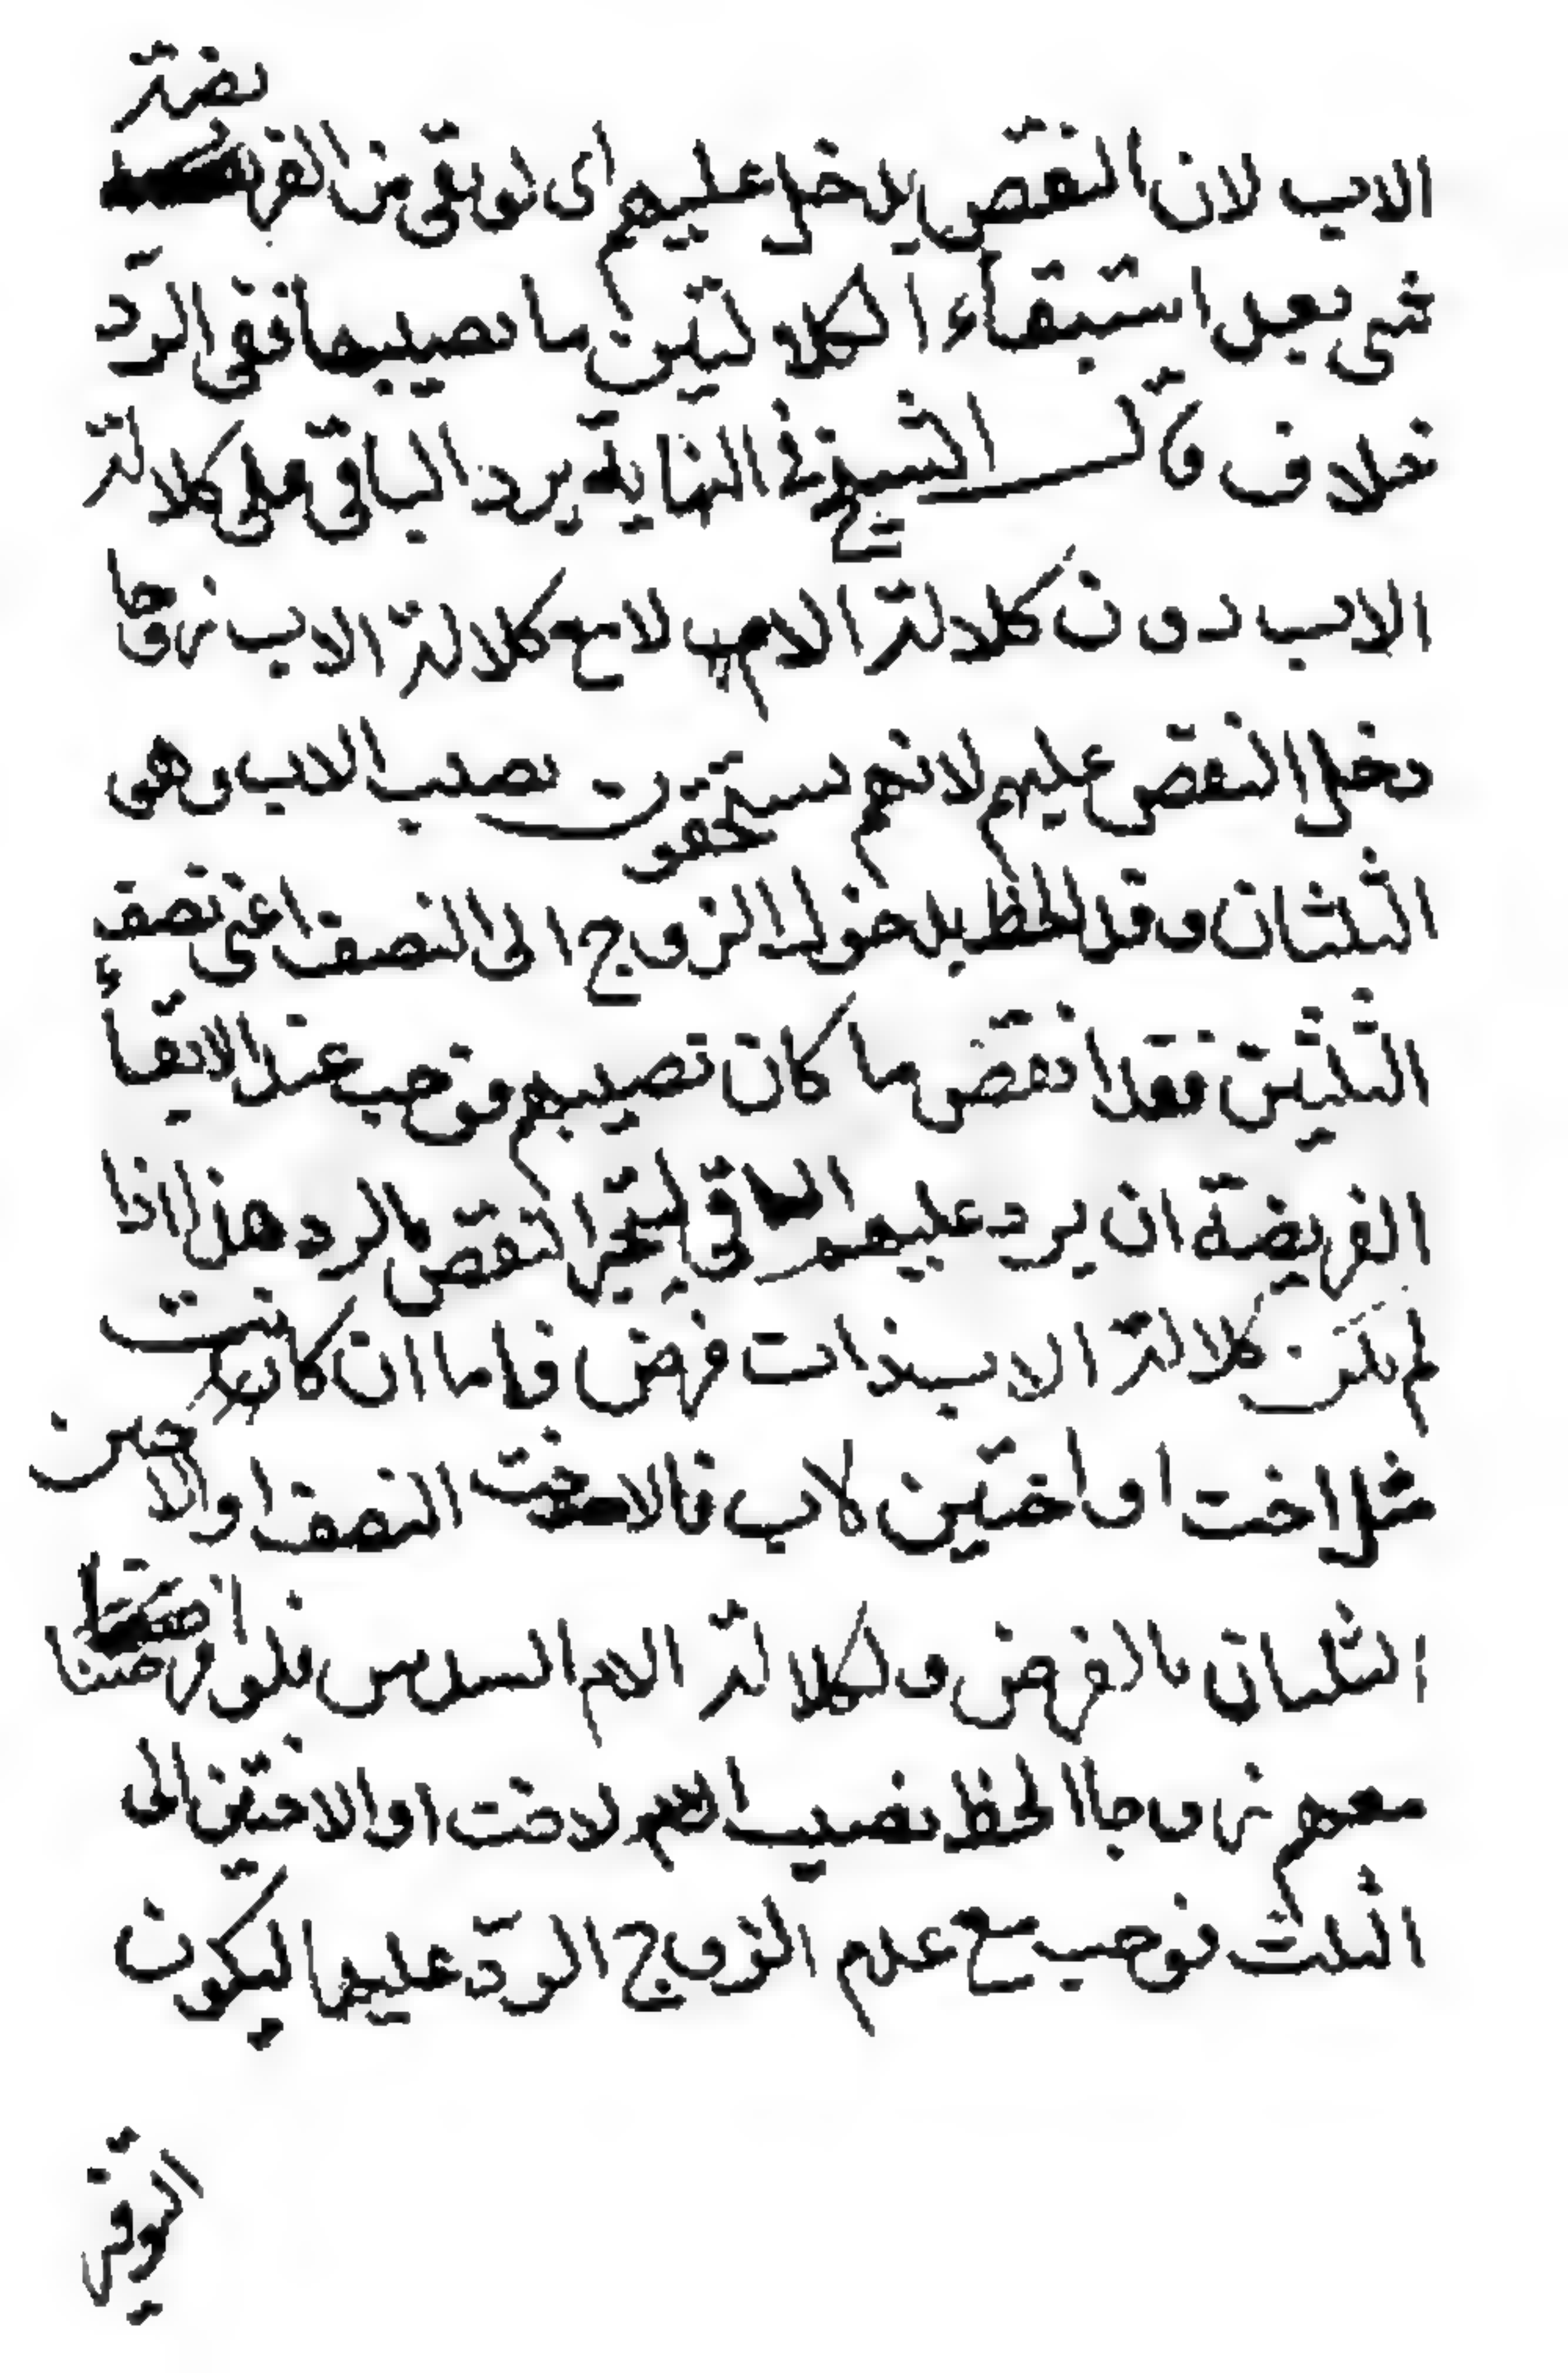 الاب لان النقص يدخل عليهم اى لو بقى من الفريضة
شى بعد استبقاء الكلالتين ما نصيبهما ففى الرد
خلاف قال الشيخ فى النهاية يرد الباقى على كلالة
الاب دون كلالة الام لا مع كلالة الاب زوجا
دخل النقص عليهم لانهم يستحقون نصيب الاب وهى
الثلثان وقد الحظ بدخول الزوج الى النصف اعنى نصف
الثلثين فقد انقض ما كان نصيبهم فوجب عند الابقاء
الفريضة ان يرد عليهم الباقى لينجبر النقص بالرد هذا اذا
لم يكن كلالة الاب ذات فرض فاما ان كانت
مثل اخت او اختين لاب فالاخت النصف او الاختين
الثلثان بالفرض و لكلالة الام السدس فلو فرضنا
معهم زوجا الحظ نصيب الاخت او الاختين الى
الثلث فوجب مع عدم الزوج الرد عليهما ليكون
التوفير